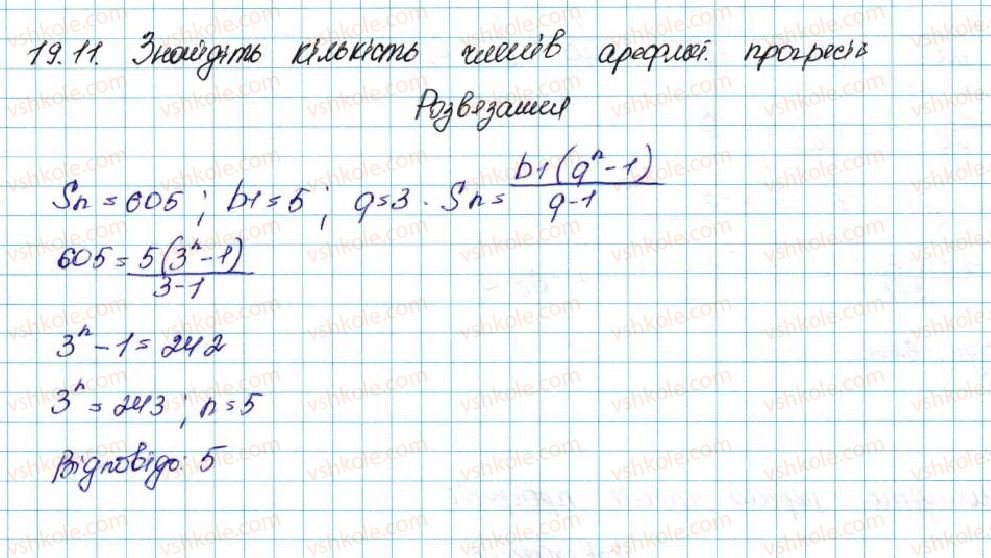 19.11. Знайдіть кількість членів арефмет. прогресій
Розвязання
Sn = 605 ; b1 = 5 ; q = 3 . Sn = b1(q^n - 1) / q-1
605 = 5(3^n - 1) / 3-1
3^n - 1 = 242
3^n = 243 ; n = 5
Відповідь: 5